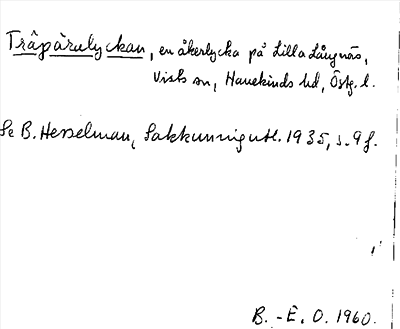 Tråpärulyckan, en åkerlycka på Lilla Långnäs,
Visks sn, Hanekinds hd, Östg. l.
Se B. Hesselman, Sakkunnigutl. 1935, s. 9 f.
B.-E. O. 1960.